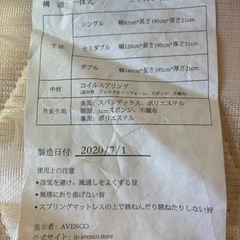 構 造: 一体式
寸 法
シングル 幅97cm*長さ195cm*厚さ21cm
セミダブル 幅120cm*長さ195cm*厚さ21cm
ダブル 幅140cm*長さ195cm*厚さ21cm
中材 コイルスプリング
スポンジ、不織布
外装生地 表面:スパンデックス、ポリエステル
1cmスポンジ、不織布
裏面:ポリエステル
製造日付: 2020/7/1
使用上の注意
・湿気を避け、風通しをよくする旨
・無理に折り曲げない旨
・スプリングマットレスの上で跳ねんだり跳ねたりしない旨
表示者: AVENCO
公式サイト: jp.avenco.store